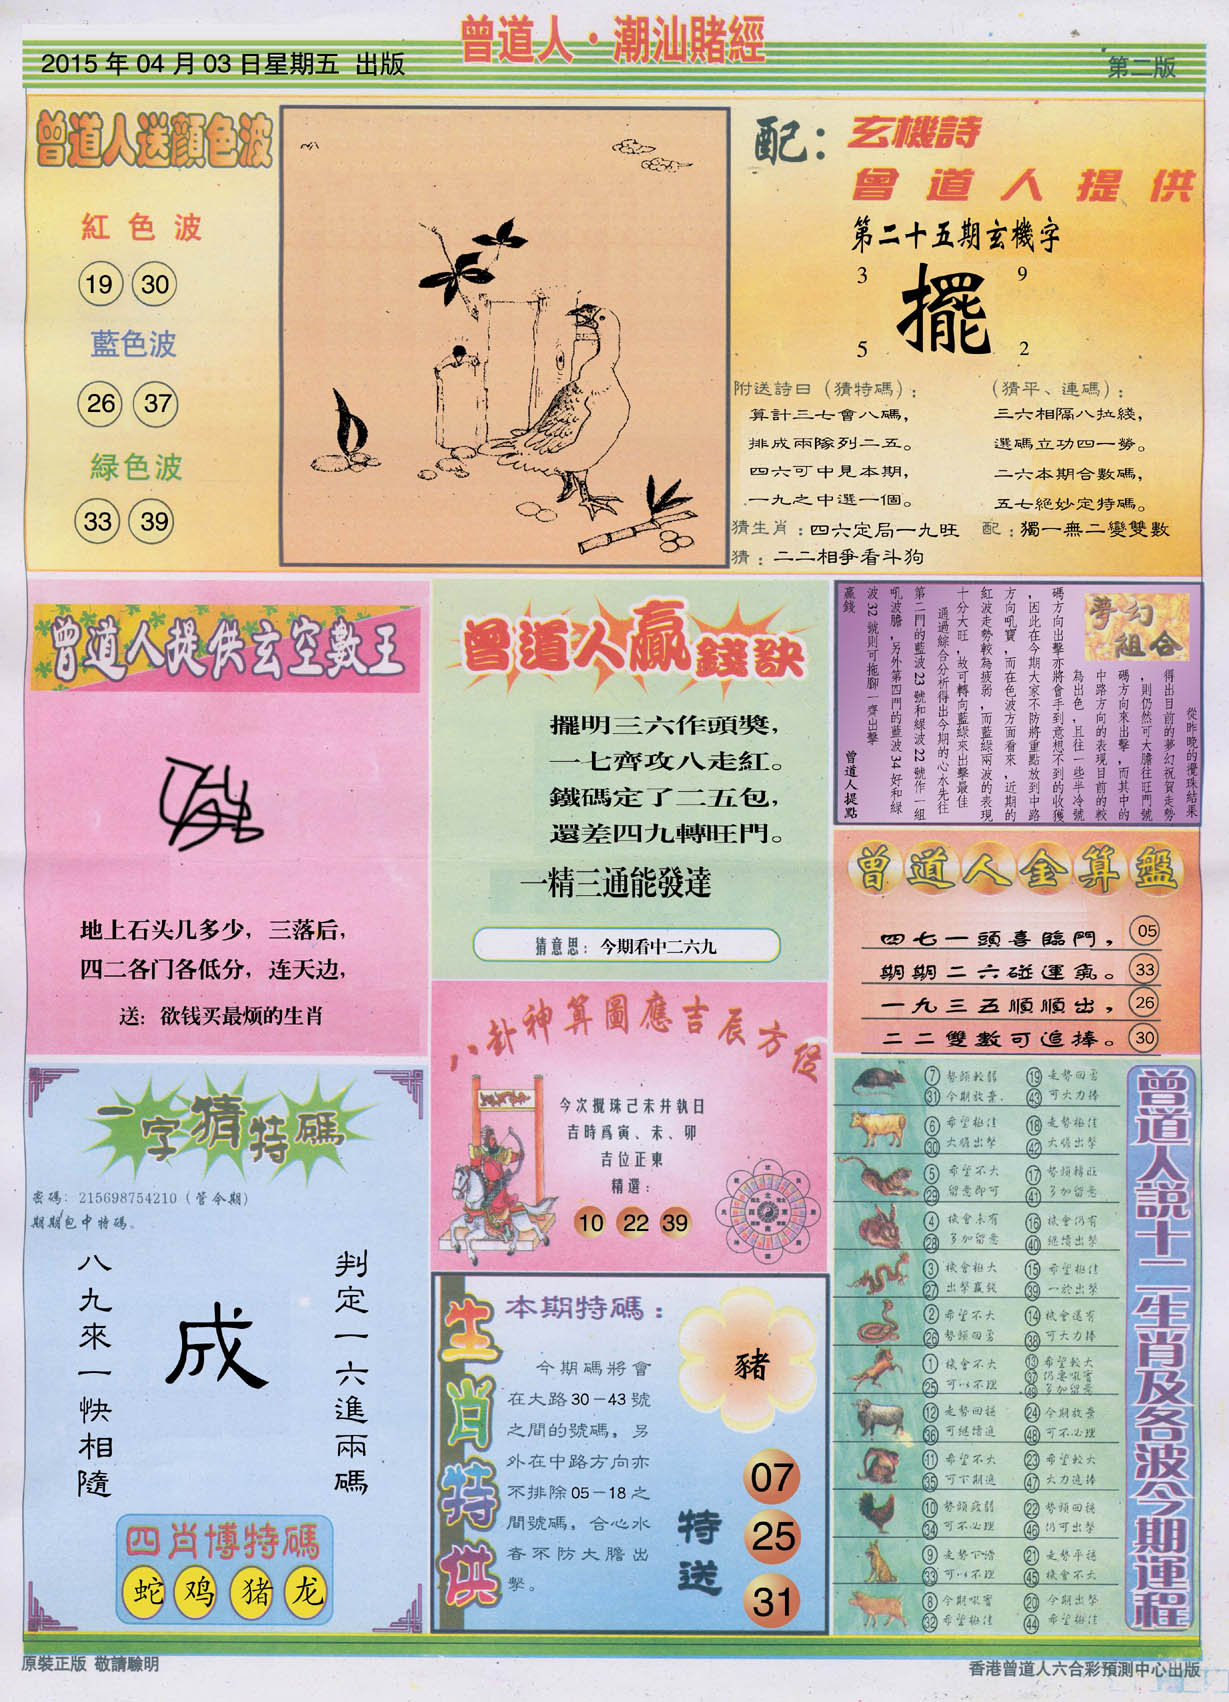 曾道人·潮汕賭經
2015 年 04 月 03 日星期五 出版
第二版
曾道人送顏色波
紅色波
19 30
藍色波
26 37
緑色波
33 39
配：玄機詩
曾道人提供
第二十五期玄機字
3 9
擺
5 2
附送詩曰（猜特碼）：
算計三七會八碼，
排成兩隊列二五。
四六可中見本期，
一九之中選一個。
（猜平、連碼）：
三六相隔八拉綫，
選碼立功四一勞。
二六本期合數碼，
五七絕妙定特碼。
猜生肖：四六定局一九旺 配：獨一無二變雙數
猜：二二相爭看斗狗
曾道人提供玄空數王
地上石头几多少，三落后，
四二各门各低分，连天边，
送：欲钱买最烦的生肖
曾道人贏錢訣
擺明三六作頭獎，
一七齊攻八走紅。
鐵碼定了二五包，
還差四九轉旺門。
一精三通能發達
猜意思：今期看中二六九
夢幻組合
從昨晚的攪珠結果
得出目前的夢幻祝賀走勢
，則仍然可大膽往旺門號
碼方向來出擊，而其中的
中路方向的表現目前的較
為出色，且往一些半冷號
碼方向出擊亦將會手到意想不到的收獲
，因此在今期大家不防將重點放到中路
方向吼寶，而在色波方面看來，近期的
紅波走勢較為疲弱，而藍綠兩波的表現
十分大旺，故可轉向藍綠來出擊最佳
通過綜合分析得出今期的心水先往
第二門的藍波 23 號和綠波 22 號作一組
吼波膽，另外第四門的藍波 34 好和綠
波 32 號則可拖腳一齊出擊
贏錢
曾道人提點
曾道人金算盤
四七一頭喜臨門， 05
期期二六碰運氣。 33
一九三五順順出， 26
二二雙數可追捧。 30
八卦神算圖應吉辰方位
今次攪珠己未井執日
吉時爲寅、未、卯
吉位正東
精選：
10 22 39
一字猜特碼
密碼：215698754210（管令期）
期期包中特碼。
判定一六進兩碼
成
八九來一快相隨
四肖博特碼
蛇 鸡 猪 龙
生肖特供
本期特碼：
今期碼將會
在大路30－43號
之間的號碼，另
外在中路方向亦
不排除05－18之
間號碼，合心水
者不防大膽出
擊。
豬
特送
07
25
31
曾道人説十二生肖及各波今期運程
7 勢頭較弱 19 走勢回勇
31 今期放棄 43 可大力捧
6 希望極佳 18 走勢極佳
30 大膽出擊 42 大膽出擊
5 希望不大 17 勢頭轉旺
29 留意即可 41 多加留意
4 機會未有 16 機會仍有
28 多加留意 40 繼續出擊
3 機會極大 15 希望極佳
27 出擊贏錢 39 一於出擊
2 希望不大 14 機會還有
26 勢頭回勇 38 可大力捧
1 機會不大 13 希望較大
25 可以不理 37 仍要吸實
49 多加留意
12 走勢回穩 24 今期放棄
36 可繼續追 48 可不必理
11 希望不大 23 希望較大
35 可下期追 47 大力追捧
10 勢頭疲弱 22 勢頭回穩
34 可不必理 46 仍可出擊
9 走勢下滑 21 走勢平穩
33 可以不理 45 機會不大
8 今期吸實 20 今期出擊
32 希望極佳 44 希望極佳
原裝正版 敬請驗明
香港曾道人六合彩預測中心出版